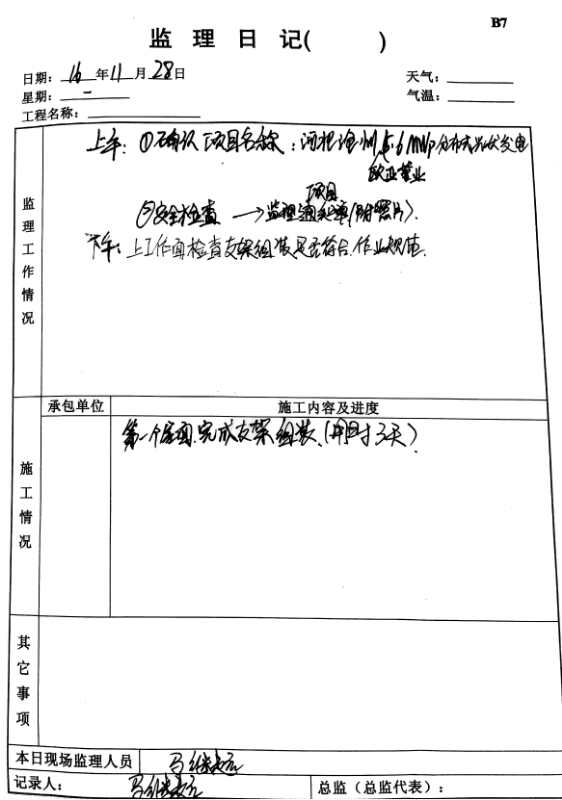 B7
监 理 日 记( )
日期: 16 年 11 月 28 日
天气:
星期: 一
气温:
工程名称:
监理工作情况
上午: ①确认项目名称: 河 州 5.6 MWp 分布式光伏发电
项目
②安全检查 → 监理通知单(附照片).
下午: 上工作面检查支架组装是否符合作业规范.
承包单位
施工内容及进度
施工情况
第一个屋面完成支架组装.(用时3天)
其它事项
本日现场监理人员 马继
记录人: 马继
总监(总监代表):